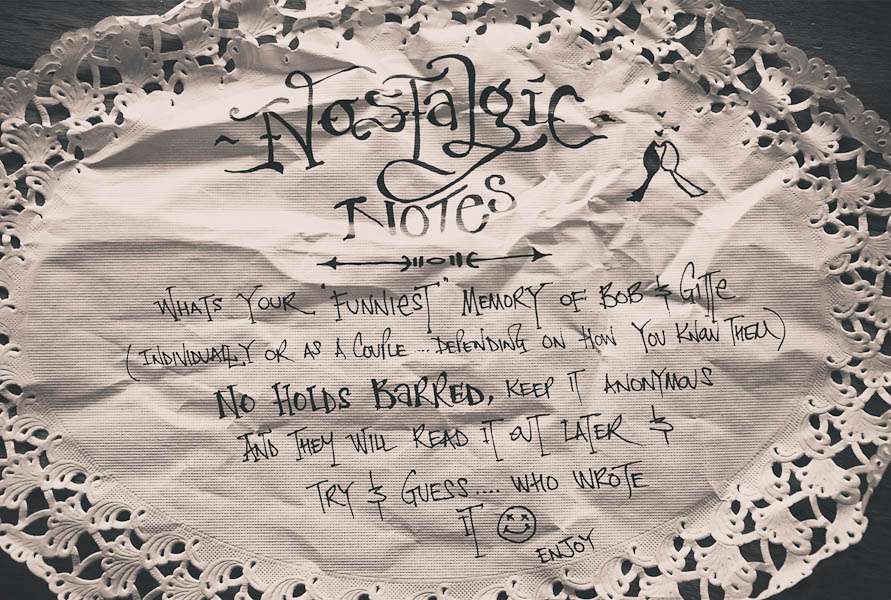 ~Nostalgic~
NOTES
WHATS YOUR "FUNNIEST" MEMORY OF BOB & GITTE
(INDIVIDUALLY OR AS A COUPLE ... DEPENDING ON HOW YOU KNOW THEM)
NO HOLDS BARRED, KEEP IT ANONYMOUS
AND THEY WILL READ IT OUT LATER &
TRY & GUESS.... WHO WROTE
IT
ENJOY